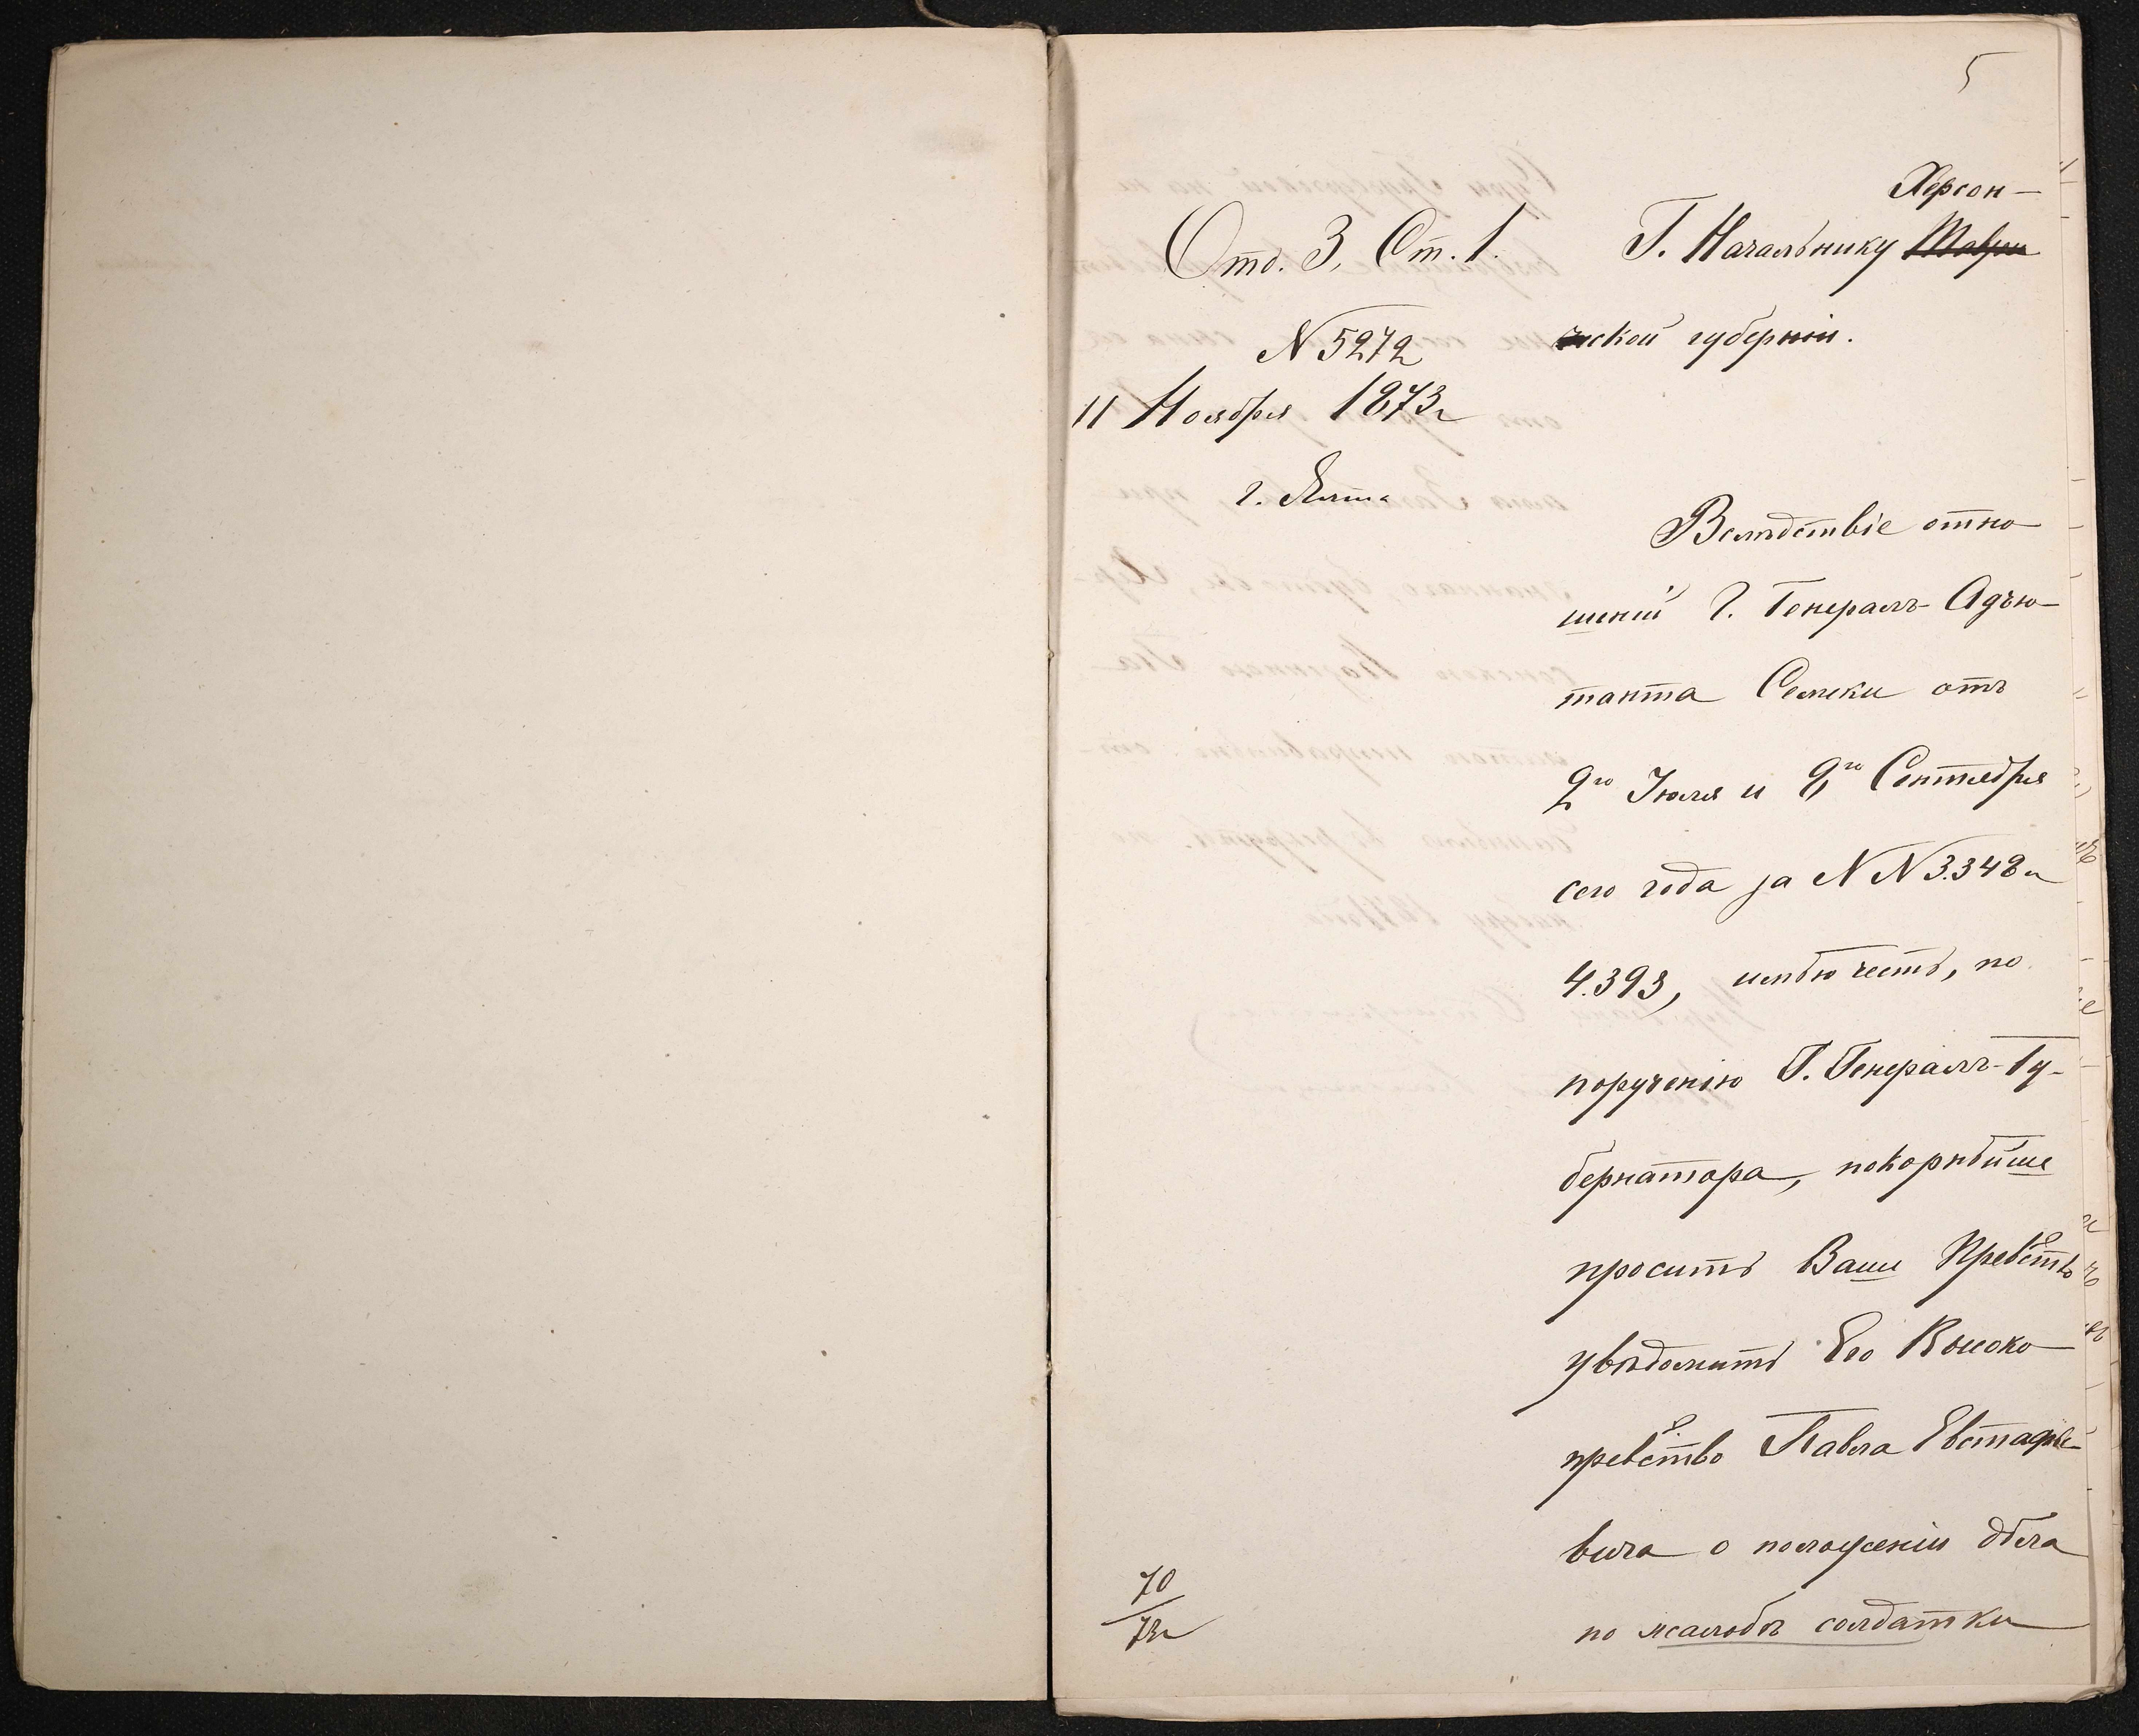 5
Отд. 3, Ст. 1.
N 5272
11 Ноября 1873 г
г. Ялта
Херсон-
Г. Начальнику Таври
ской губерніи.
Вслѣдствіе отно-
шеній Г. Генералъ-Адъю-
танта Семеки отъ
2го Іюля и 8го Сентября
сего года за NN 3.348 и
4.393, имѣю честь, по
порученію Г. Генералъ-Гу-
бернатора, покорнѣйше
просить Ваше Превство
увѣдомить Его Высоко-
превство Павла Евстафье-
вича о положеніи дѣла
по жалобѣ солдатки
70/73 г